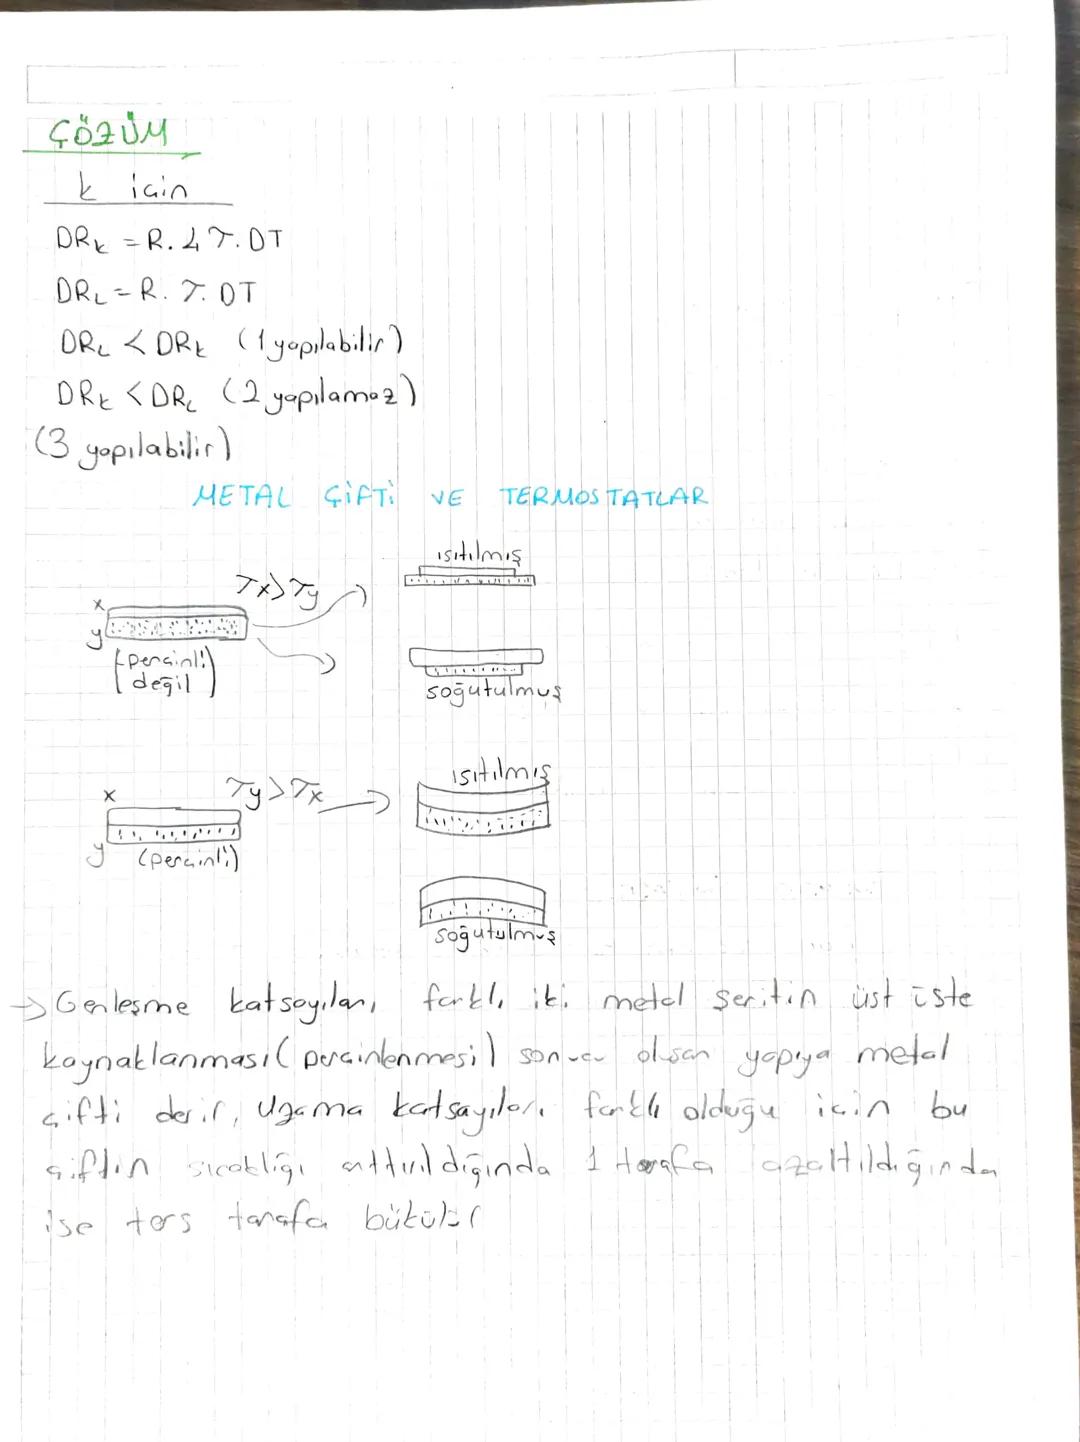 ÇÖZÜM
k için
DRk = R. 4 τ. DT
DRL = R. τ. DT
DRL < DRk (1 yapılabilir)
DRk < DRL (2 yapılamaz)
(3 yapılabilir)
METAL ÇİFTİ VE TERMOSTATLAR
ısıtılmış
τx > τy
x
y
(perçinli değil)
soğutulmuş
ısıtılmış
x
τy > τx
y
(perçinli)
soğutulmuş
→ Genleşme katsayıları farklı iki metal şeritin üst üste
kaynaklanması (perçinlenmesi) sonucu oluşan yapıya metal
çifti denir, Uzama katsayıları farklı olduğu için bu
çiftin sıcaklığı arttırıldığında 1 tarafa azaltıldığında
ise ters tarafa bükülür